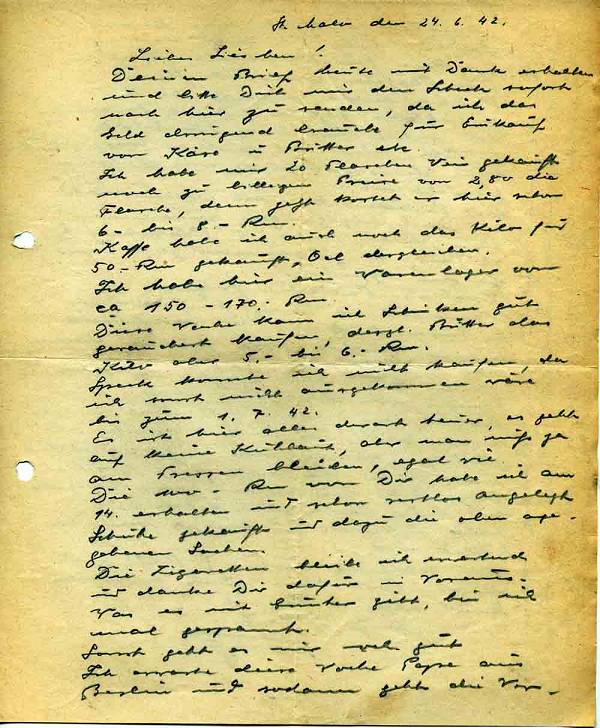 St. Malo den 24.6.42.
Liebes Lieschen!
Deinen Brief heute mit Dank erhalten
und bitte Dich mir den Scheck sofort
nach hier zu senden, da ich das
Geld dringend brauche für Einkauf
von Käse u Butter etc.
Ich habe mir 20 Flaschen Wein gekauft
noch zu billigem Preise von 2,80 die
Flasche, denn jetzt kostet er hier schon
6.- bis 8.- Rm.
Kaffe habe ich auch noch das Kilo für
50.- Rm gekauft, Oel dergleichen.
Ich habe hier ein Warenlager von
ca 150 - 170.- Rm.
Diese Woche kann ich Schinken gut
geräuchert kaufen, dergl. Butter das
Kilo aber 5.- bis 6.- Rm.
Speck konnte ich nicht kaufen, da
ich sonst nicht ausgekommen wäre
bis zum 1.7.42.
Es ist hier alles derart teuer, es geht
auf keine Kuhhaut, aber man muß ja
am Fressen bleiben, egal wie.
Die 100.- Rm von Dir habe ich am
14. erhalten und schon restlos angelegt
Schuhe gekauft u dazu die oben ange-
gebenen Sachen.
Die Zigaretten bleibe ich erwartend
u danke Dir dafür im Voraus.
Was es mit Günter gibt, bin ich
mal gespannt.
Sonst geht es mir sehr gut
Ich erwarte diese Woche Pape aus
Berlin und sodann geht die Vor-